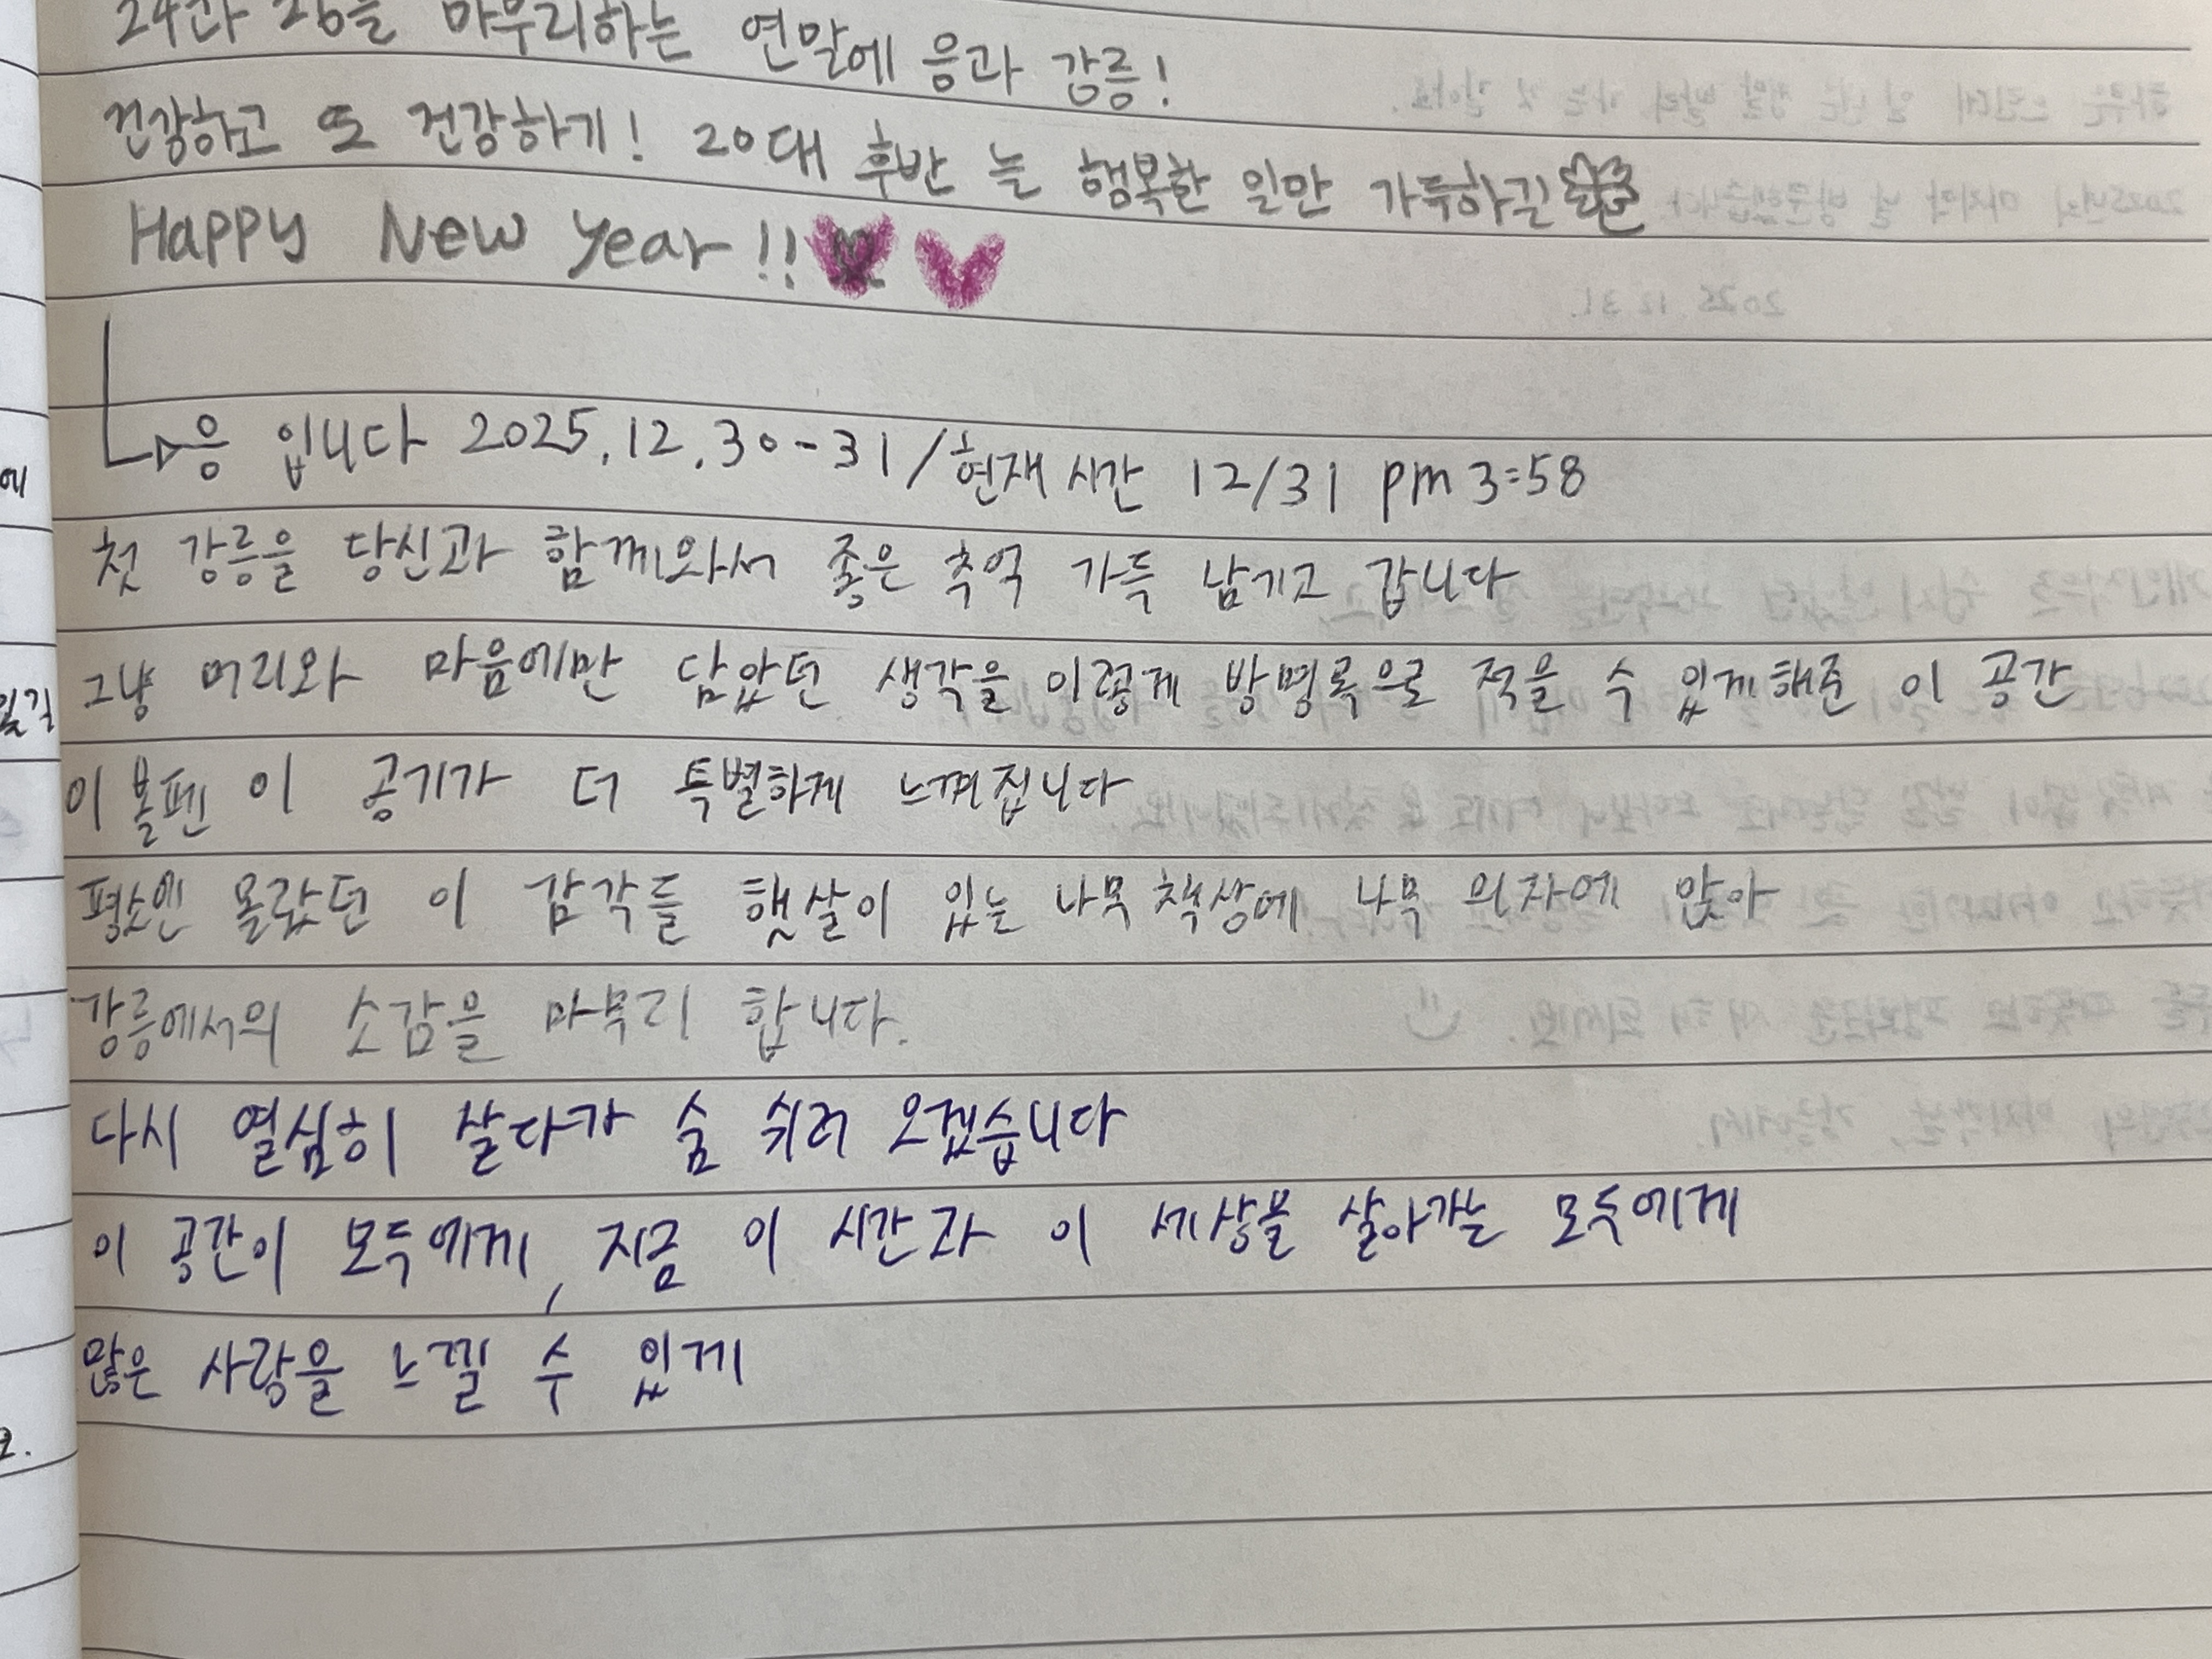 24과 26을 마무리하는 연말에 응과 강릉!
건강하고 또 건강하기! 20대 후반 늘 행복한 일만 가득하길
Happy New Year!!
응 입니다 2025.12.30-31/현재 시간 12/31 pm 3:58
첫 강릉을 당신과 함께와서 좋은 추억 가득 남기고 갑니다
그냥 머리와 마음에만 담았던 생각을 이렇게 방명록으로 적을 수 있게해준 이 공간
이 볼펜 이 공기가 더 특별하게 느껴집니다
평소엔 몰랐던 이 감각들 햇살이 있는 나무 책상에 나무 의자에 앉아
강릉에서의 소감을 마무리 합니다.
다시 열심히 살다가 숨 쉬러 오겠습니다
이 공간이 모두에게, 지금 이 시간과 이 세상을 살아가는 모두에게
많은 사랑을 느낄 수 있게